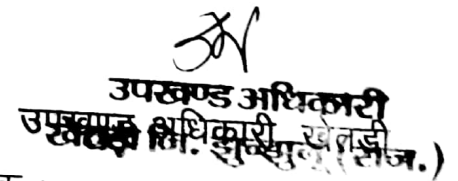 उपखण्ड अधिकारी
उपखण्ड अधिकारी खेतड़ी
खेतड़ी जि. झुन्झुनू (राज.)